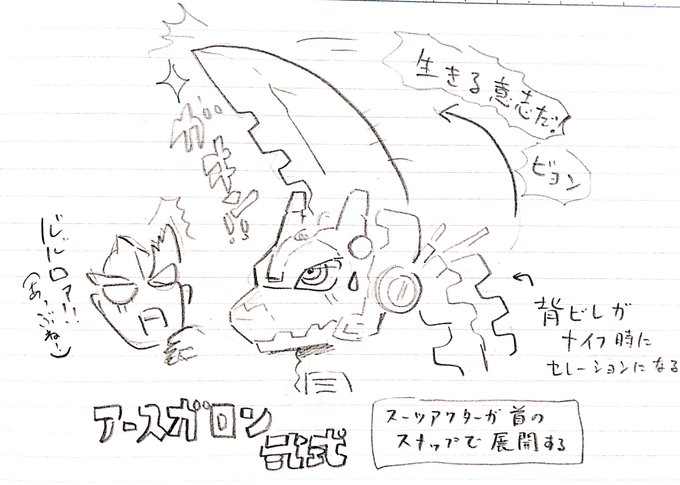 生きる意志だ!
ビヨン
ガキン!!
ルルロァ!!
(あっぶね〜)
背ビレが
ナイフ時に
セレーションになる
アースガロン
弐式
スーツアクターが首の
スナップで展開する